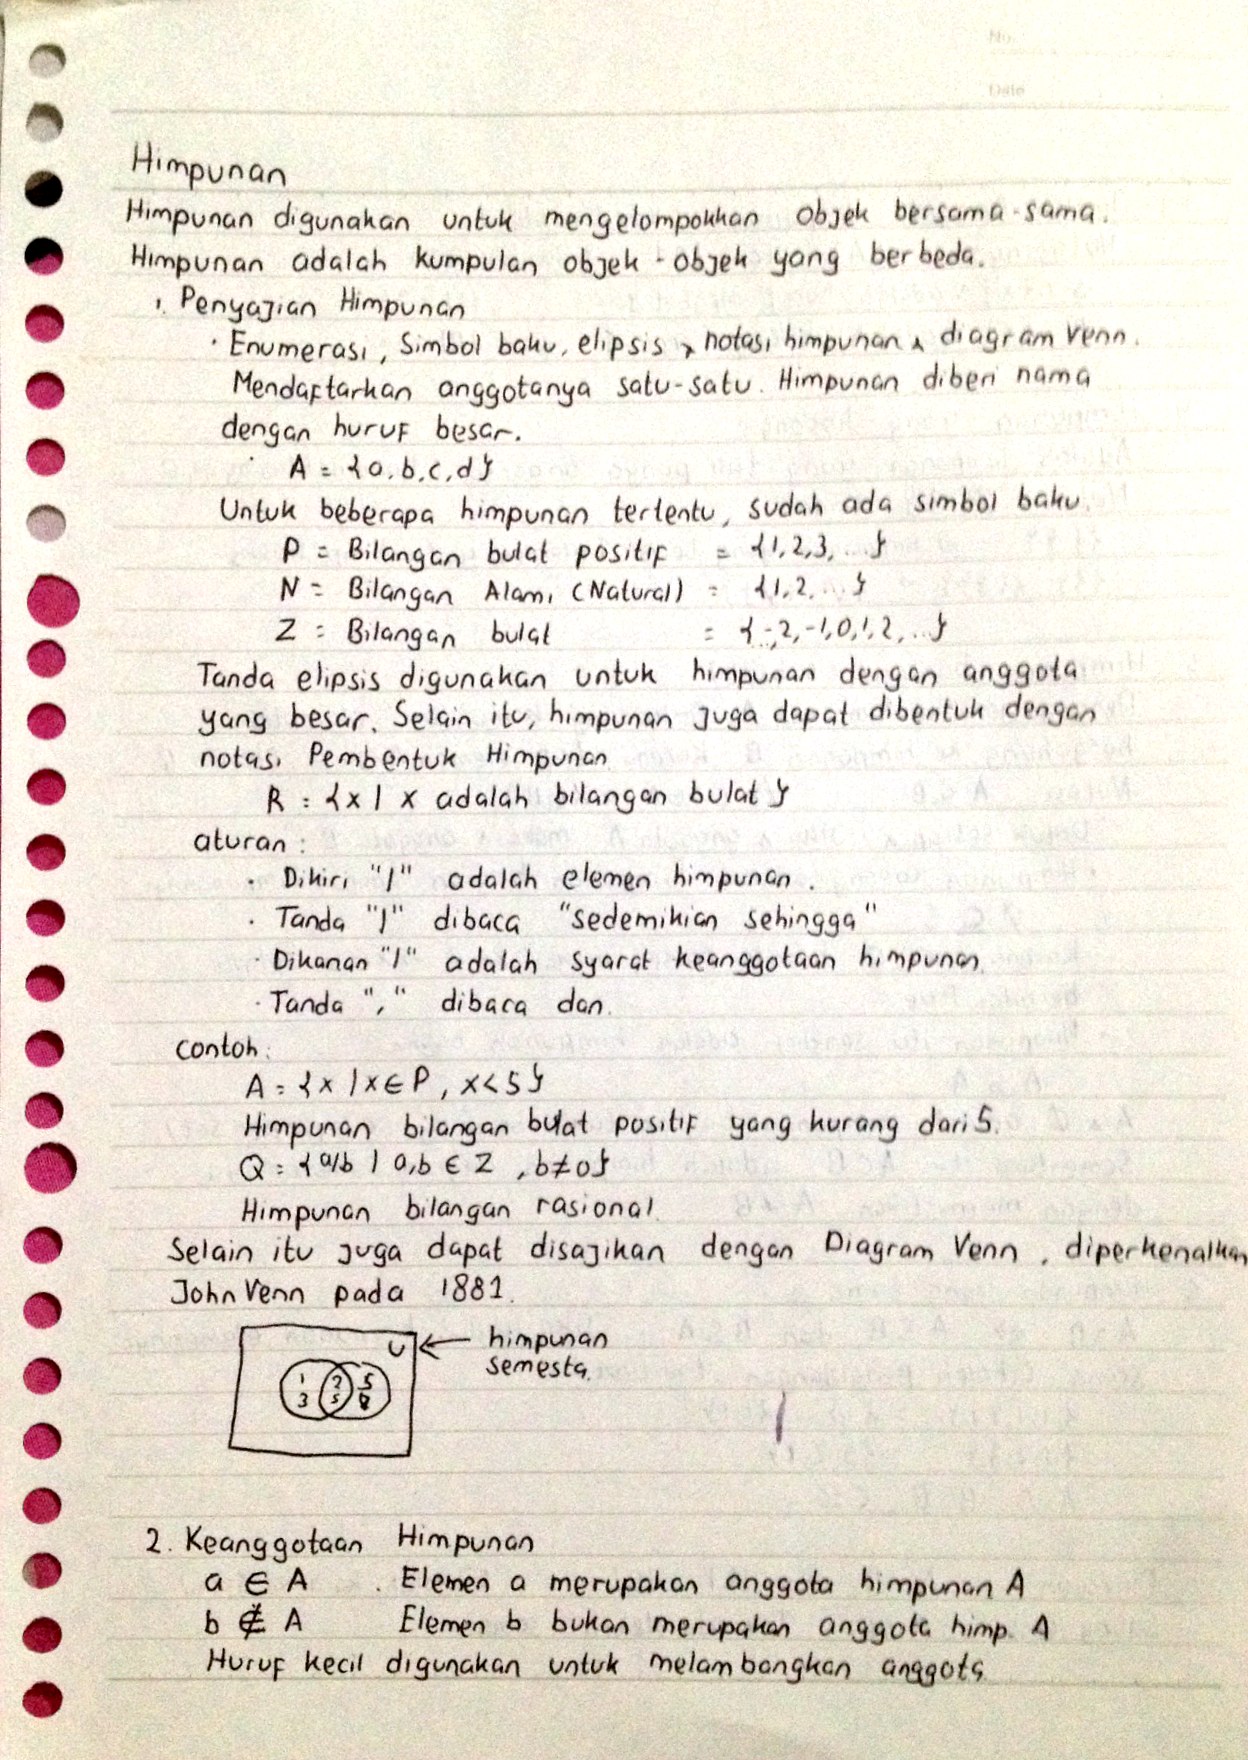 No.
Date
Himpunan
Himpunan digunakan untuk mengelompokkan objek bersama-sama.
Himpunan adalah kumpulan objek-objek yang berbeda.
1. Penyajian Himpunan
· Enumerasi, Simbol baku, elipsis, notasi himpunan, diagram Venn.
Mendaftarkan anggotanya satu-satu. Himpunan diberi nama
dengan huruf besar.
A = {a, b, c, d}
Untuk beberapa himpunan tertentu, sudah ada simbol baku.
P = Bilangan bulat positif = {1, 2, 3, ...}
N = Bilangan Alami (Natural) = {1, 2, ...}
Z = Bilangan bulat = {..., -2, -1, 0, 1, 2, ...}
Tanda elipsis digunakan untuk himpunan dengan anggota
yang besar. Selain itu, himpunan juga dapat dibentuk dengan
notasi Pembentuk Himpunan.
R = {x | x adalah bilangan bulat}
aturan:
· Dikiri "|" adalah elemen himpunan.
· Tanda "|" dibaca "sedemikian sehingga"
· Dikanan "|" adalah syarat keanggotaan himpunan.
· Tanda "," dibaca dan.
contoh:
A = {x | x ∈ P, x < 5}
Himpunan bilangan bulat positif yang kurang dari 5.
Q = {a/b | a, b ∈ Z, b ≠ 0}
Himpunan bilangan rasional.
Selain itu juga dapat disajikan dengan Diagram Venn, diperkenalkan
John Venn pada 1881.
U ← himpunan
semesta.
1 2 5
3 5 8
2. Keanggotaan Himpunan
a ∈ A . Elemen a merupakan anggota himpunan A
b ∉ A Elemen b bukan merupakan anggota himp. A
Huruf kecil digunakan untuk melambangkan anggota.